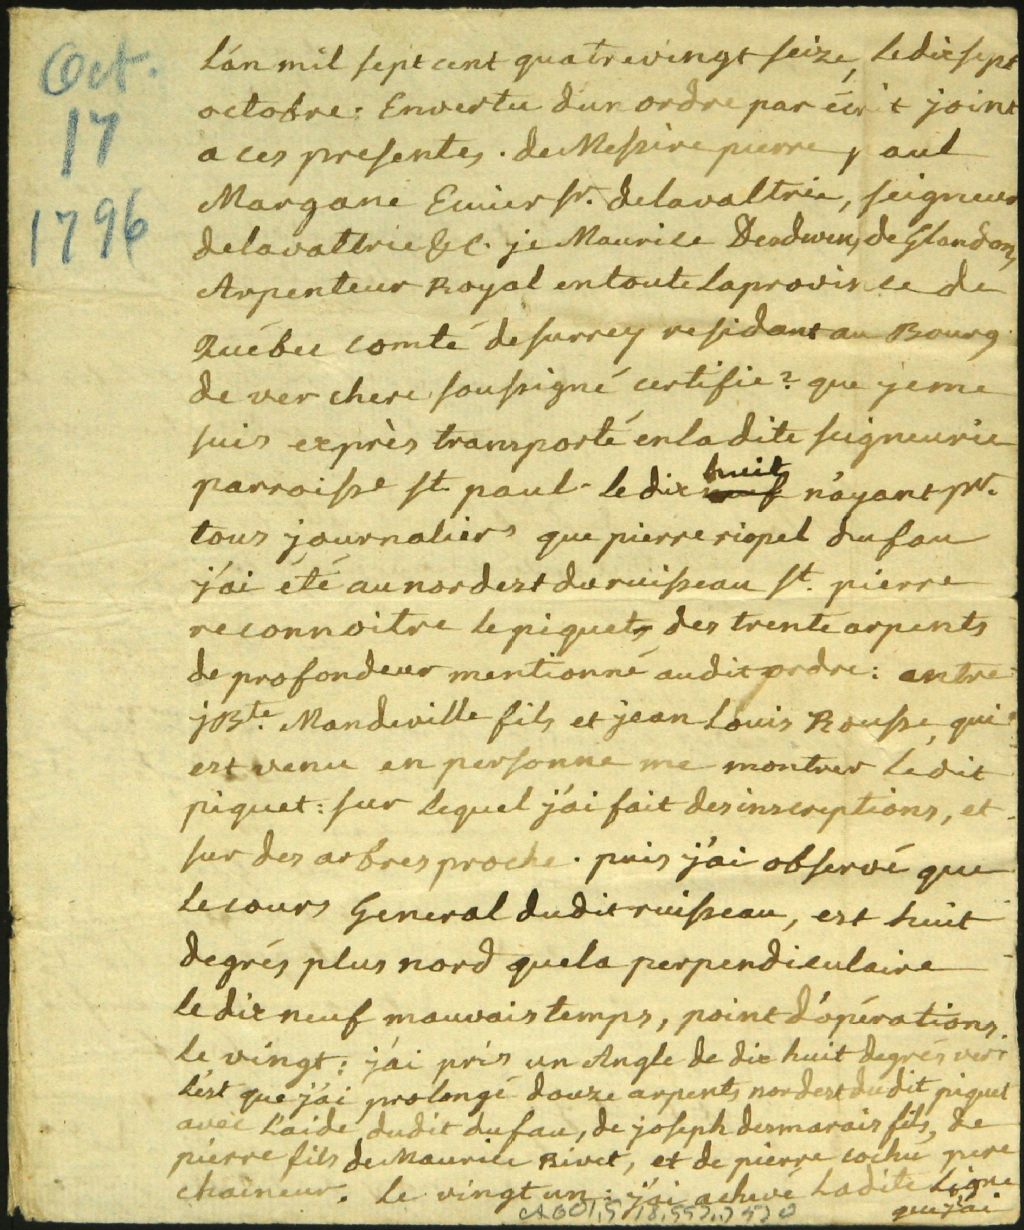 Oct.
17
1796
L'an mil sept cent quatrevingt seize, le dix sept
octobre: En vertu d'un ordre par écrit joint
a ces presentes. de Messire pierre paul
Margane Ecuier sr. de lavaltrie, seigneur
de lavaltrie &c. je Maurice de Glandons
Arpenteur Royal en toute la province de
Québec comté de surrey residant au Bourg
de ver chere soussigné certifie? que je me
suis exprès transporté en la dite seigneurie
parroisse st. paul. le dix huit n'ayant pr.
tous journaliers que pierre riopel dufau
j'ai été au nordest du ruisseau st. pierre
reconnoitre le piquet des trente arpents
de profondeur mentionné audit ordre: entre
j Bte. Mandeville fils et jean Louis Rousse, qui
est venu en personne me montrer le dit
piquet: sur lequel j'ai fait des inscreptions, et
sur des arbres proche. puis j'ai observé que
le cours General dudit ruisseau, est huit
degrés plus nord que la perpendiculaire
le dix neuf mauvais temps, point d'opérations.
le vingt: j'ai pris un Angle de dix huit degrés vers
l'est que j'ai prolongé douze arpents nordest dudit piquet
avec l'aide dudit dufau, de joseph desmarais fils, de
pierre fils de Maurice Rivet, et de pierre cochu pere
chaineur. le vingt un: j'ai achevé la dite Ligne
que j'ai